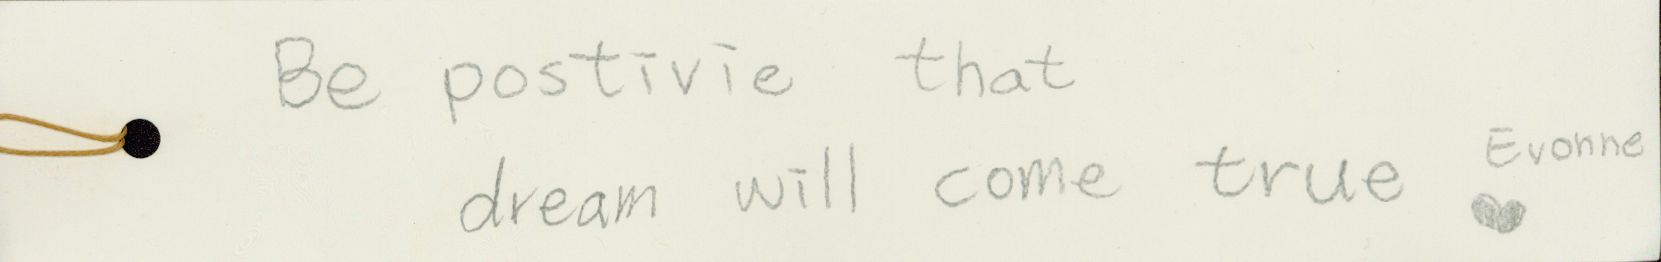 Be postivie that
dream will come true
Evonne